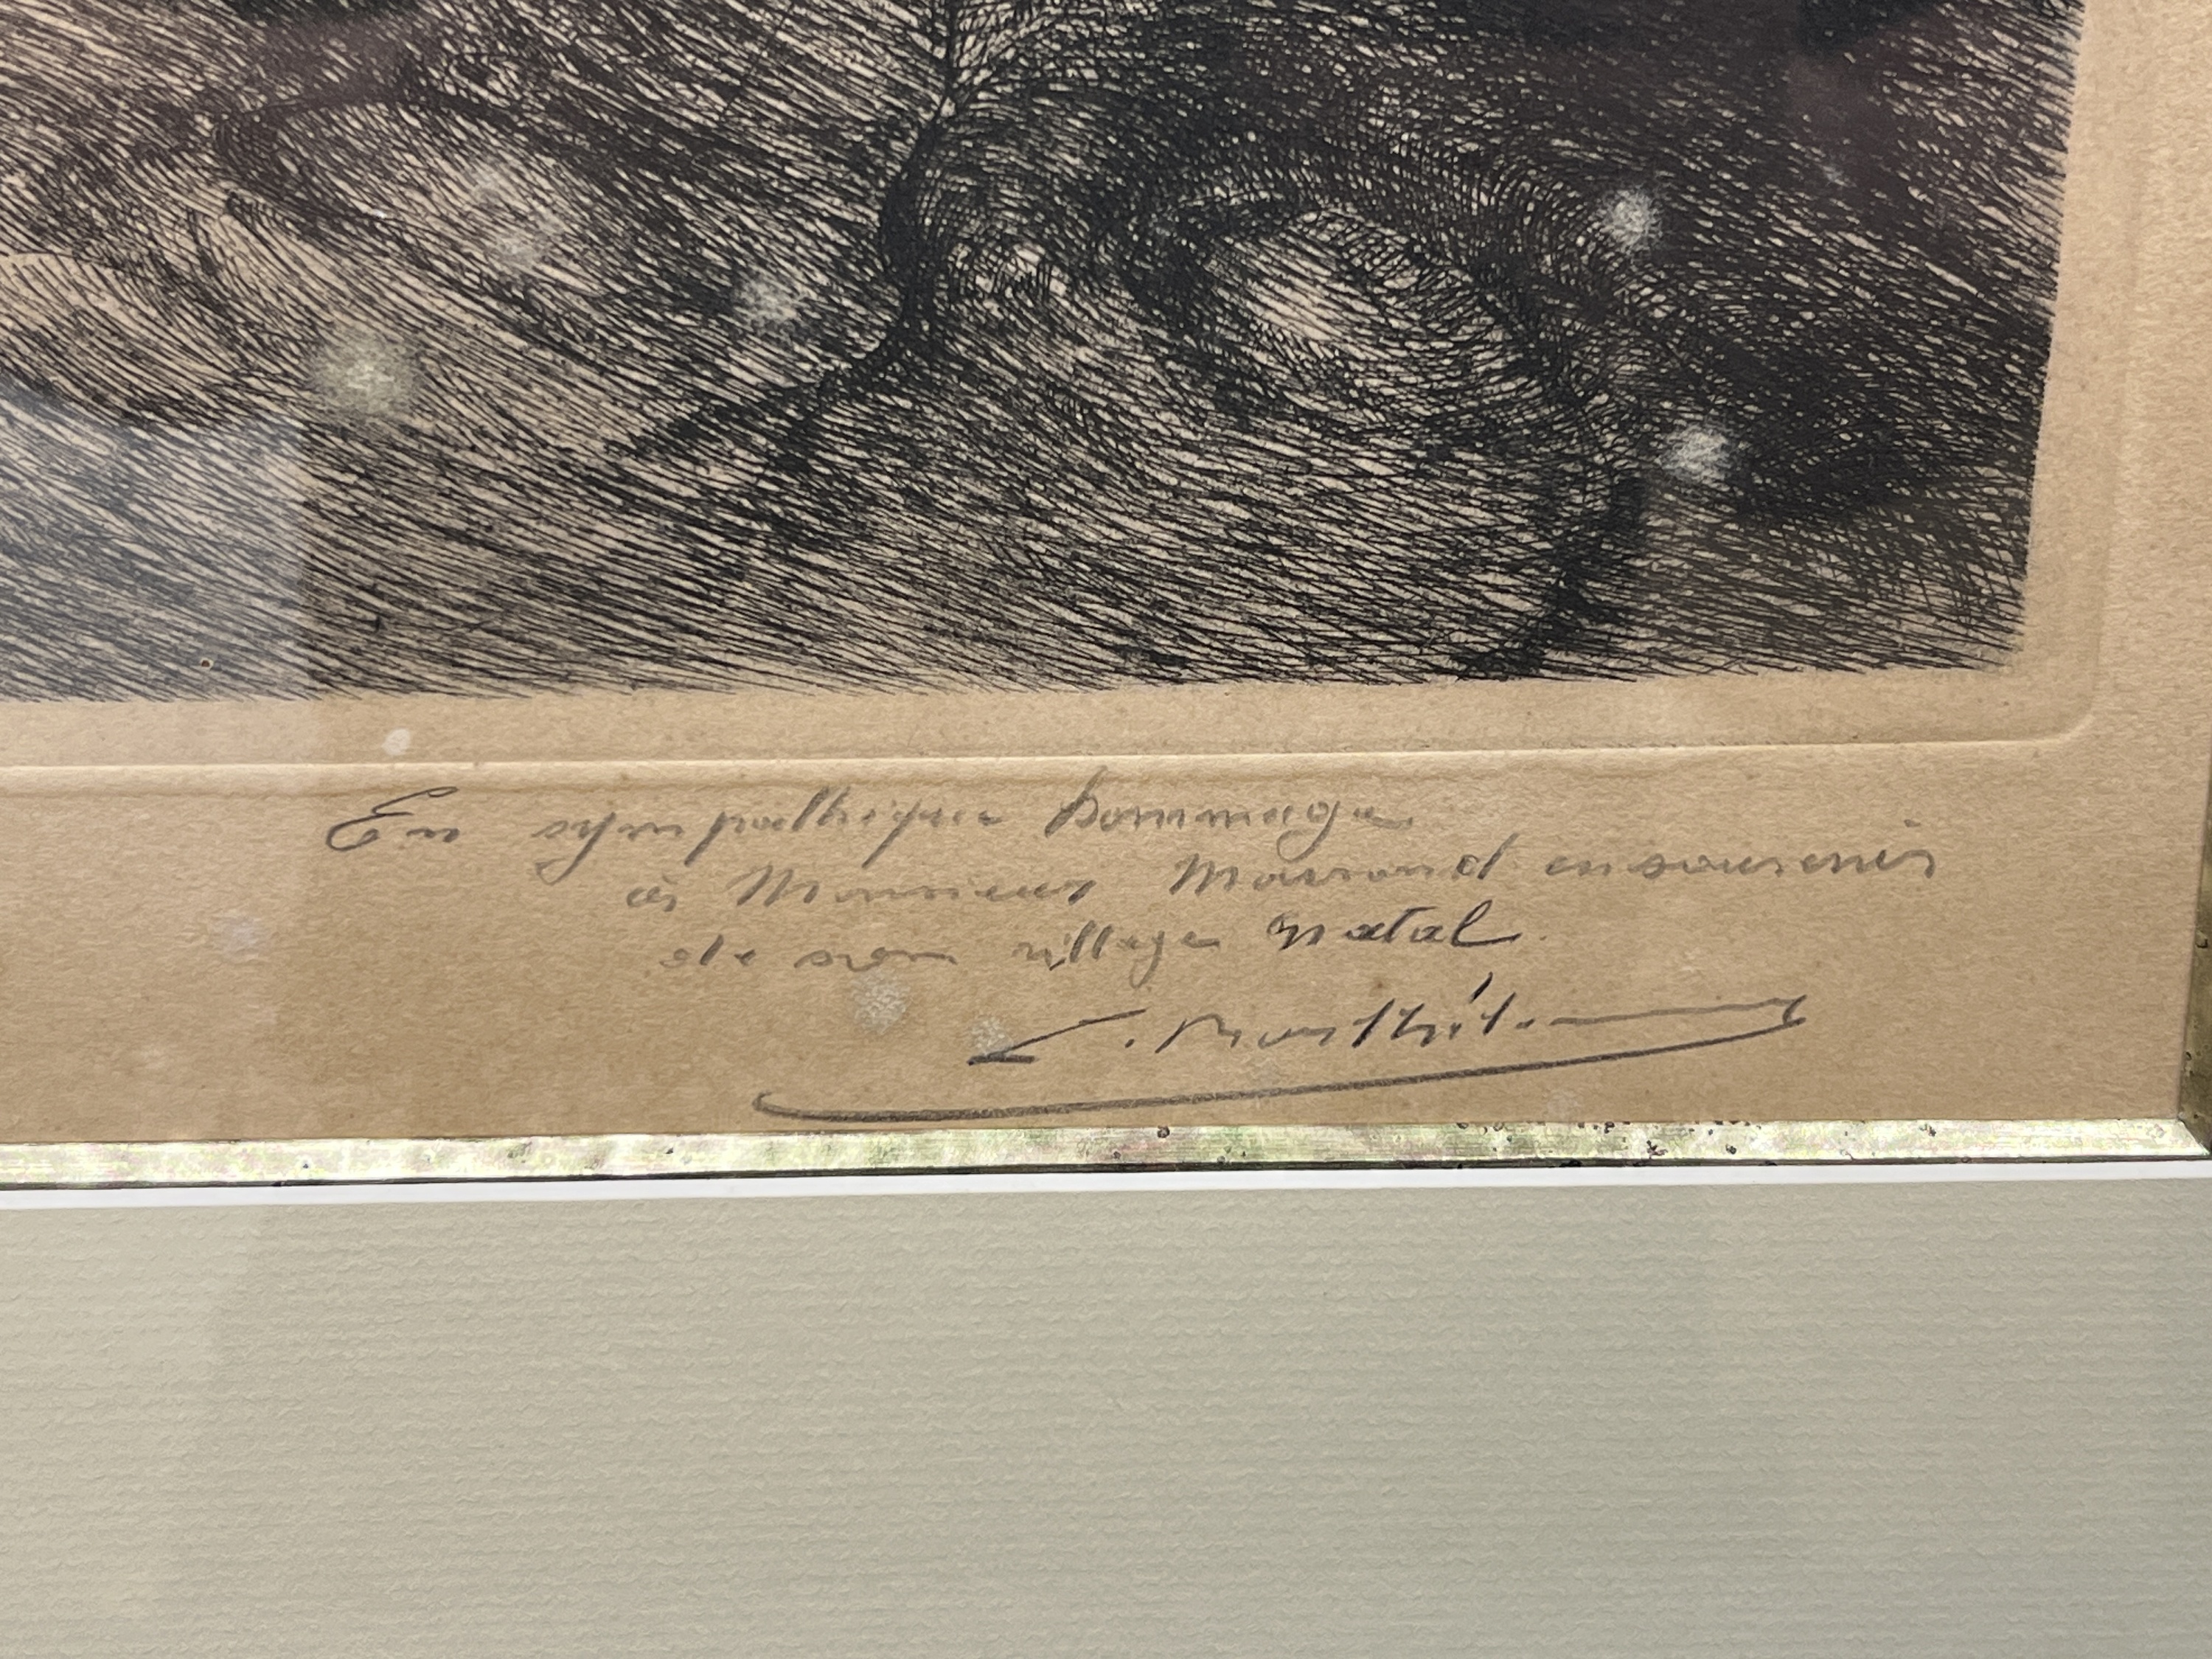 En sympathique hommage
à Monsieur Marrand en souvenir
de son village natal.